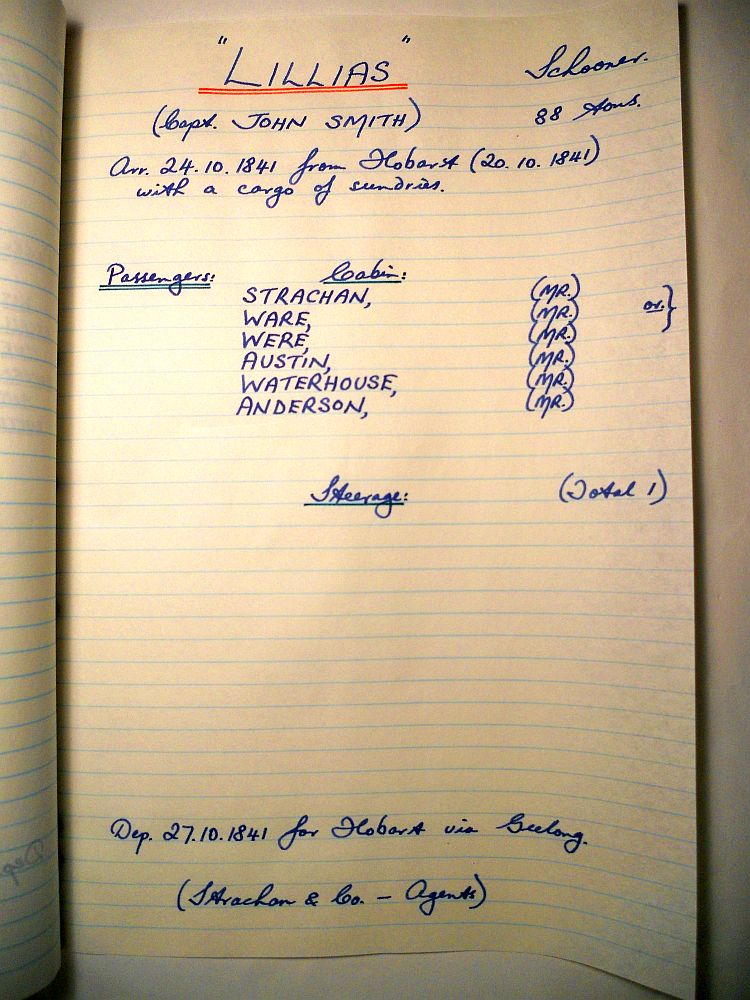 "LILLIAS" Schooner.
(Capt. JOHN SMITH) 88 Tons.
Arr. 24.10.1841 from Hobart (20.10.1841)
with a cargo of sundries.
Passengers: Cabin:
STRACHAN, (MR.)
WARE, (MR.) or }
WERE, (MR.)
AUSTIN, (MR.)
WATERHOUSE, (MR.)
ANDERSON, (MR.)
Steerage: (Total 1)
Dep. 27.10.1841 for Hobart via Geelong.
(Strachan & Co. - Agents)